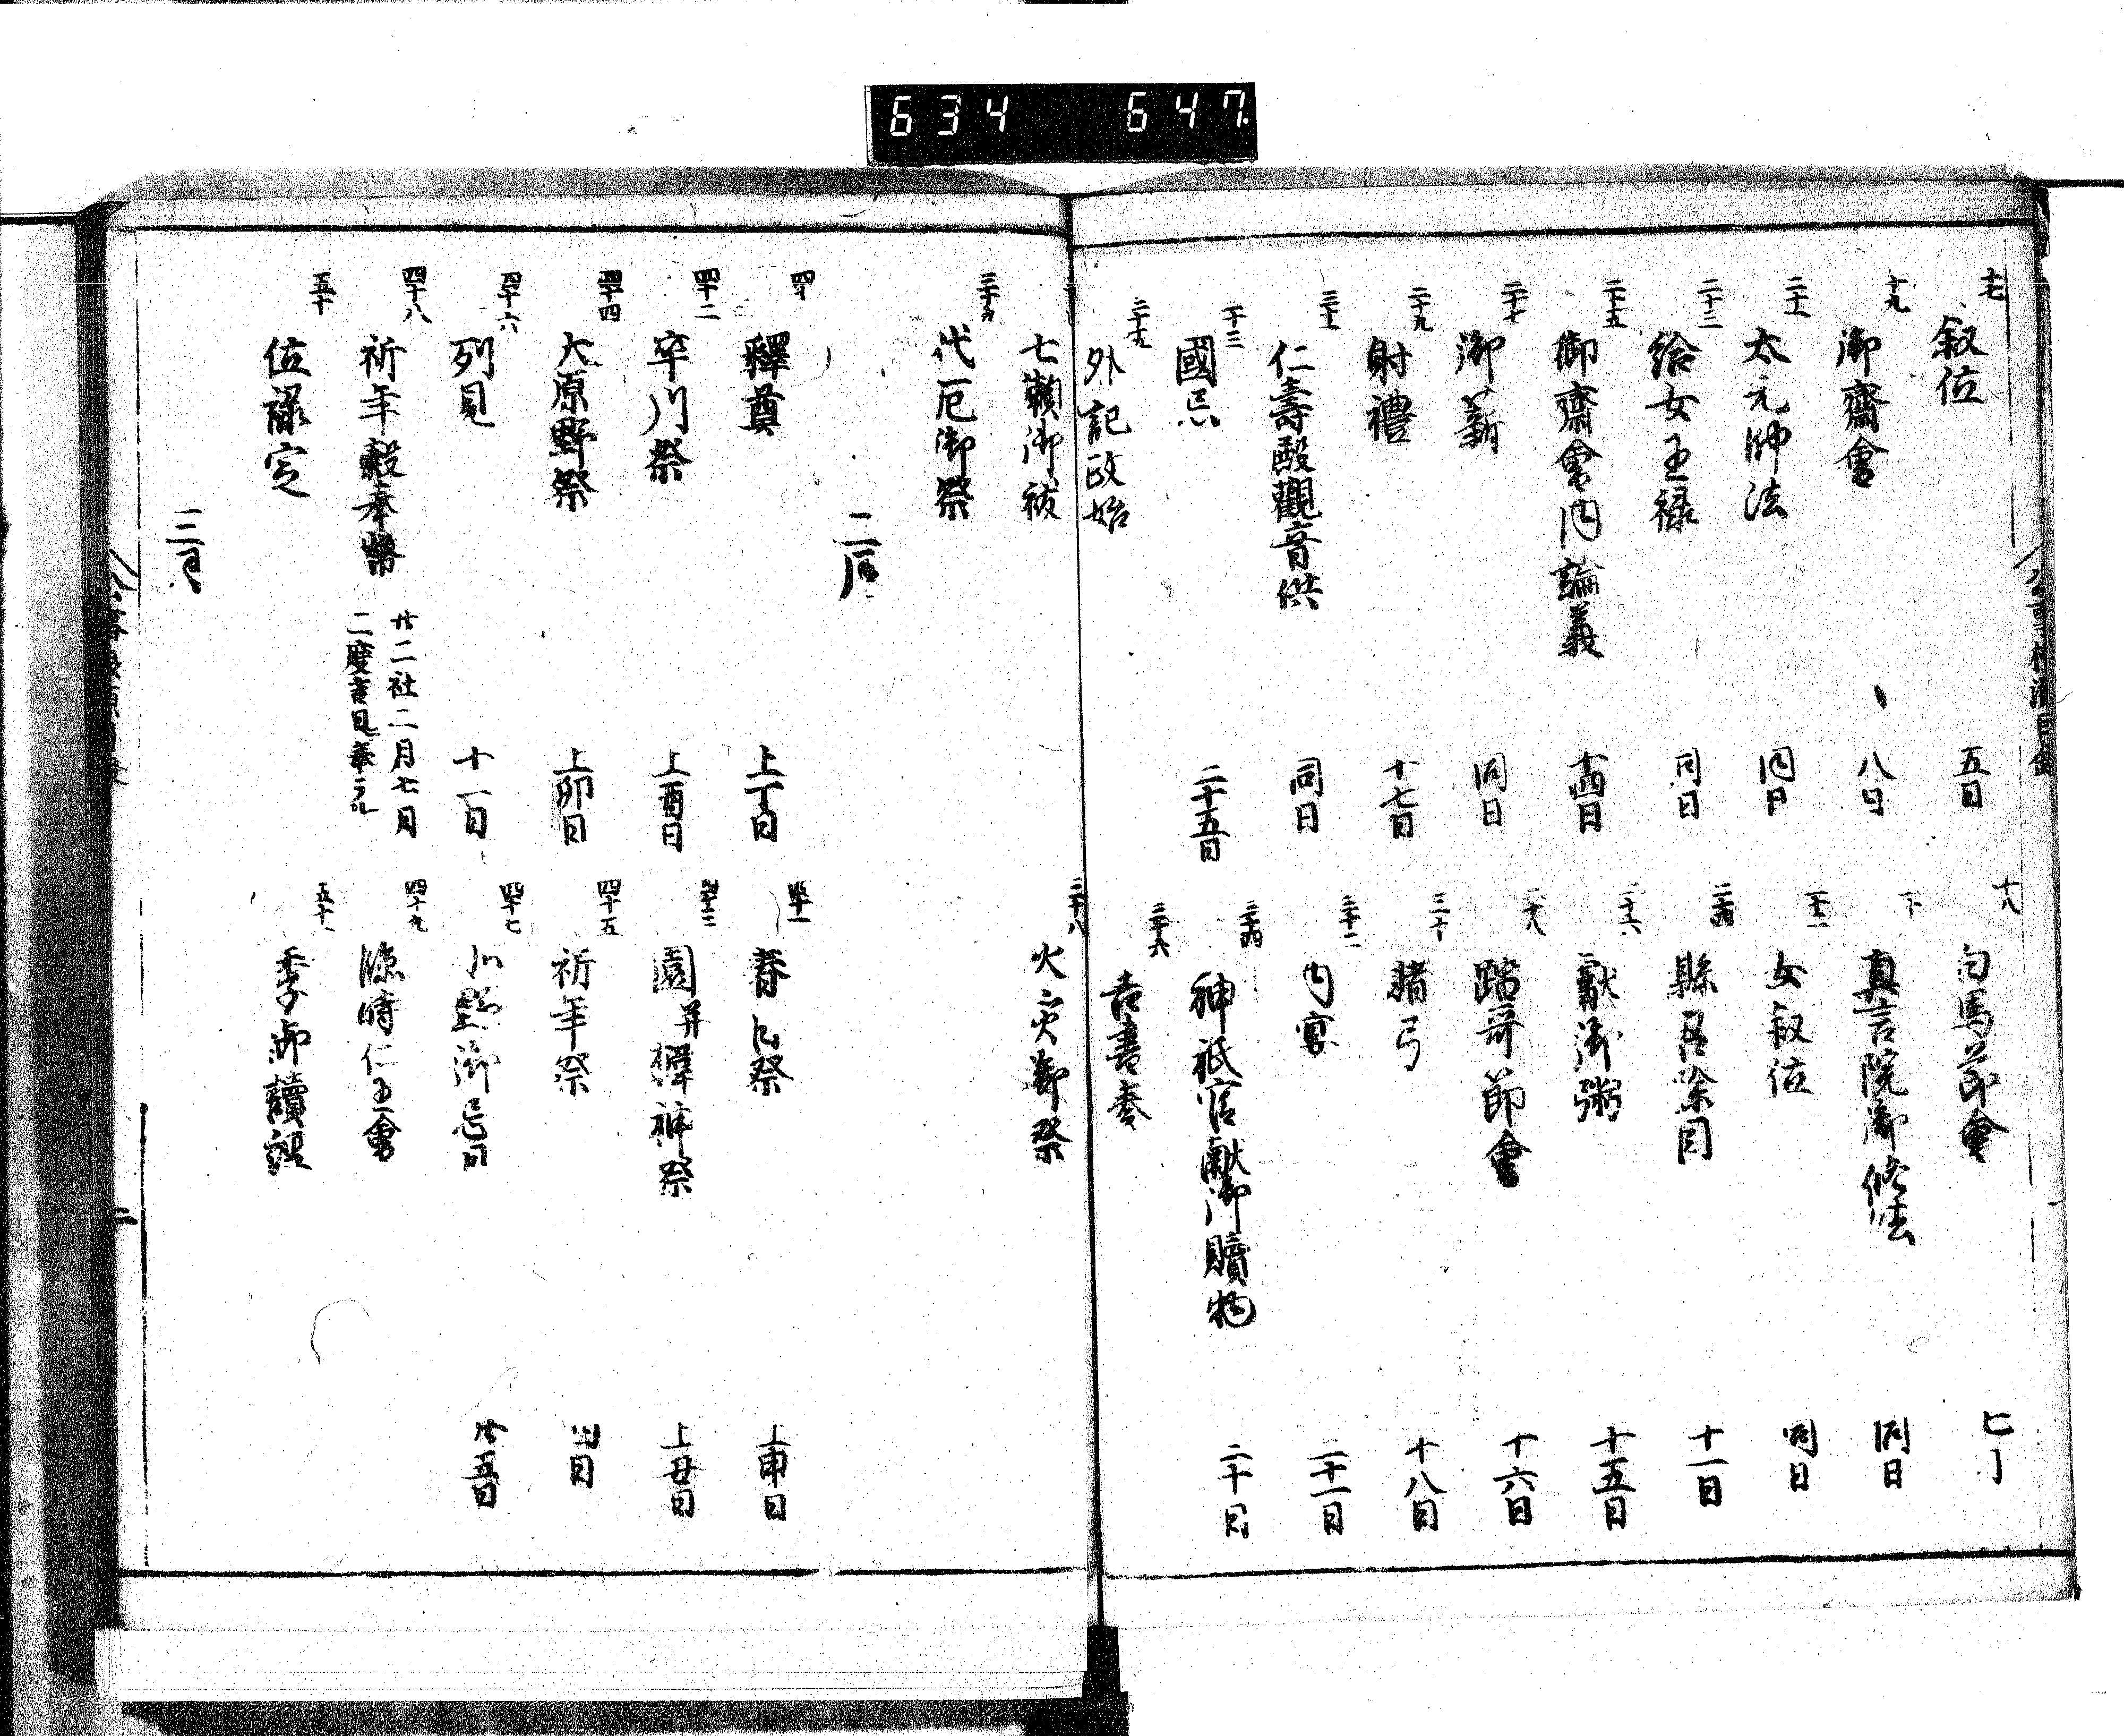 634 647.
十七 叙位 五日
十八 白馬節會
十九 御齋會 八日
真言院御修法 同日
二十一 太元帥法 同日
女叙位 同日
二十三 給女王禄 同日
二十四 縣召除目 十一日
二十五 御齋會内論義 十四日
二十六 獻御粥 十五日
二十七 御薪 同日
二十八 踏哥節會 十六日
二十九 射禮 十七日
三十 賭弓 十八日
三十一 仁壽殿觀音供 同日
三十二 内宴 二十一日
三十三 國忌 二十五日
三十四 神祇官獻御贖物
三十五 外記政始
三十六 吉書奏
七瀬御祓
三十八 火灾御祭
三十九 代厄御祭
二月
四十 釋奠 上丁日
四十一 春日祭 上申日
四十二 率川祭 上酉日
四十三 園并韓神祭 上丑日
四十四 大原野祭 上卯日
四十五 祈年祭 四日
四十六 列見 十一日
四十七 北野御忌日 廿五日
四十八 祈年穀奉幣 廿二社二月七月
二度吉日
四十九 臨時仁王會
五十 位禄定
五十一 季御讀經
三月
二